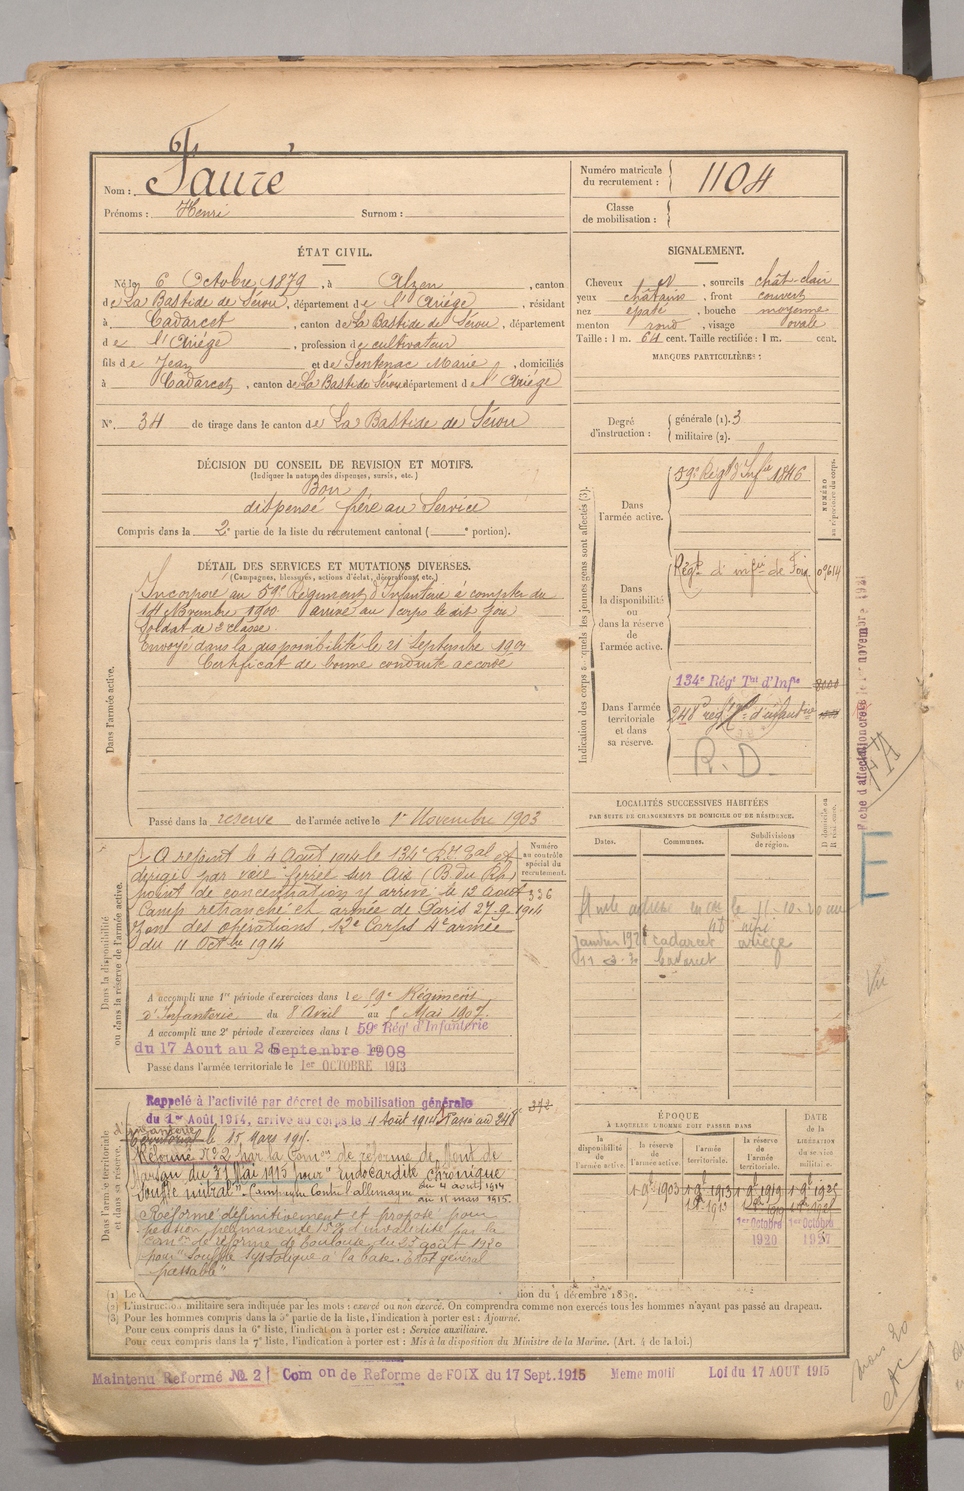 Nom : Fauré
Prénoms : Henri Surnom :
Numéro matricule du recrutement : 1104
Classe de mobilisation :
ÉTAT CIVIL.
Né le 6 Octobre 1879, à Alzen, canton
de La Bastide de Sérou, département de l'Ariége, résidant
à Cadarcet, canton de La Bastide de Sérou, département
de l'Ariége, profession de cultivateur
fils de Jean et de Sentenac Marie, domiciliés
à Cadarcet, canton de La Bastide Sérou département de l'Ariége
N° 34 de tirage dans le canton de La Bastide de Sérou
SIGNALEMENT.
Cheveux , sourcils chât clair
yeux châtains, front couvert
nez épaté, bouche moyenne
menton rond, visage ovale
Taille : 1 m. 64 cent. Taille rectifiée : 1 m. cent.
MARQUES PARTICULIÈRES :
Degré d'instruction : générale (1). 3
militaire (2).
DÉCISION DU CONSEIL DE REVISION ET MOTIFS.
(Indiquer la nature des dispenses, sursis, etc.)
Bon
dispensé frère au Service
Compris dans la 2e partie de la liste du recrutement cantonal ( e portion).
DÉTAIL DES SERVICES ET MUTATIONS DIVERSES.
(Campagnes, blessures, actions d'éclat, décorations, etc.)
Dans l'armée active.
Incorporé au 59e Régiment d'Infanterie à compter du
14 Novembre 1900. arrivé au corps le dit jour
Soldat de 2e classe.
Envoyé dans la disponibilité le 21 Septembre 1901
Certificat de bonne conduite accordé
Passé dans la réserve de l'armée active le 1er Novembre 1903
Indication des corps auxquels les jeunes gens sont affectés (3).
NUMÉRO au répertoire du corps.
Dans l'armée active.
59e Régt d'Infie 1846
Dans la disponibilité ou dans la réserve de l'armée active.
Régt d'infie de Foix 09614
Dans l'armée territoriale et dans sa réserve.
134e Régt Tal d'Infie
248e régt d'infanterie
R. D.
Fiche d'affectation créée le 1er novembre 1921
FA
Dans la disponibilité ou dans la réserve de l'armée active.
Numéro au contrôle spécial du recrutement.
336
A rejoint le 4 Août 1914 le 134e R.I. Tal et
dirigé par voie ferrée sur Aix (B. du Rh.)
point de concentration y arrivé le 12 Août
Camp retranché et armée de Paris 27.9.1914
Zone des opérations. 12e Corps 4e armée
du 11 Octbre 1914
A accompli une 1re période d'exercices dans le 59e Régiment
d'Infanterie du 8 Avril au 5 Mai 1907.
A accompli une 2e période d'exercices dans l 59e Rég' d'Infanterie
du 17 Aout au 2 Septembre 1908
Passé dans l'armée territoriale le 1er OCTOBRE 1913
LOCALITÉS SUCCESSIVES HABITÉES
PAR SUITE DE CHANGEMENTS DE DOMICILE OU DE RÉSIDENCE.
Dates. Communes. Subdivisions de région.
Cadarcet ariege
Cadarcet
Vu
Dans l'armée territoriale et dans sa réserve.
Rappelé à l'activité par décret de mobilisation générale
du 1er Août 1914, arrivé au corps le 4 Août 1914 Passé au 248e
d'infanterie le 15 Mars 1915.
Réformé N°2 par la Comon de réforme de Mont de
Marsan du 31 Mai 1915 pour "Endocardite chronique
Souffle mitral". Campagne contre l'allemagne du 4 août 1914
au 11 mars 1915.
Réformé définitivement et proposé pour
pension permanente 15% d'invalidité par la
Comon de réforme de Toulouse du 25 août 1920
pour "Souffle systolique à la base. Etat général
passable"
ÉPOQUE
À LAQUELLE L'HOMME DOIT PASSER DANS
la disponibilité de l'armée active. la réserve de l'armée active. l'armée territoriale. la réserve de l'armée territoriale.
DATE de la LIBÉRATION du service militaire.
1 9bre 1903 1 9bre 1913 1 9bre 1919 1 9bre 1925
1er Octobre 1920 1er Octobre 1927
(1) Le d tion du 4 décembre 1889.
(2) L'instruction militaire sera indiquée par les mots : exercé ou non exercé. On comprendra comme non exercés tous les hommes n'ayant pas passé au drapeau.
(3) Pour les hommes compris dans la 5e partie de la liste, l'indication à porter est : Ajourné.
Pour ceux compris dans la 6e liste, l'indication à porter est : Service auxiliaire.
Pour ceux compris dans la 7e liste, l'indication à porter est : Mis à la disposition du Ministre de la Marine. (Art. 4 de la loi.)
Maintenu Reformé № 2 Comon de Reforme de FOIX du 17 Sept. 1915 Meme motif Loi du 17 AOUT 1915